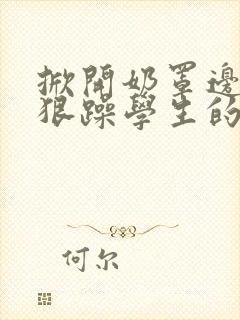 掀開奶罩邊
狠躁學生的
何尔